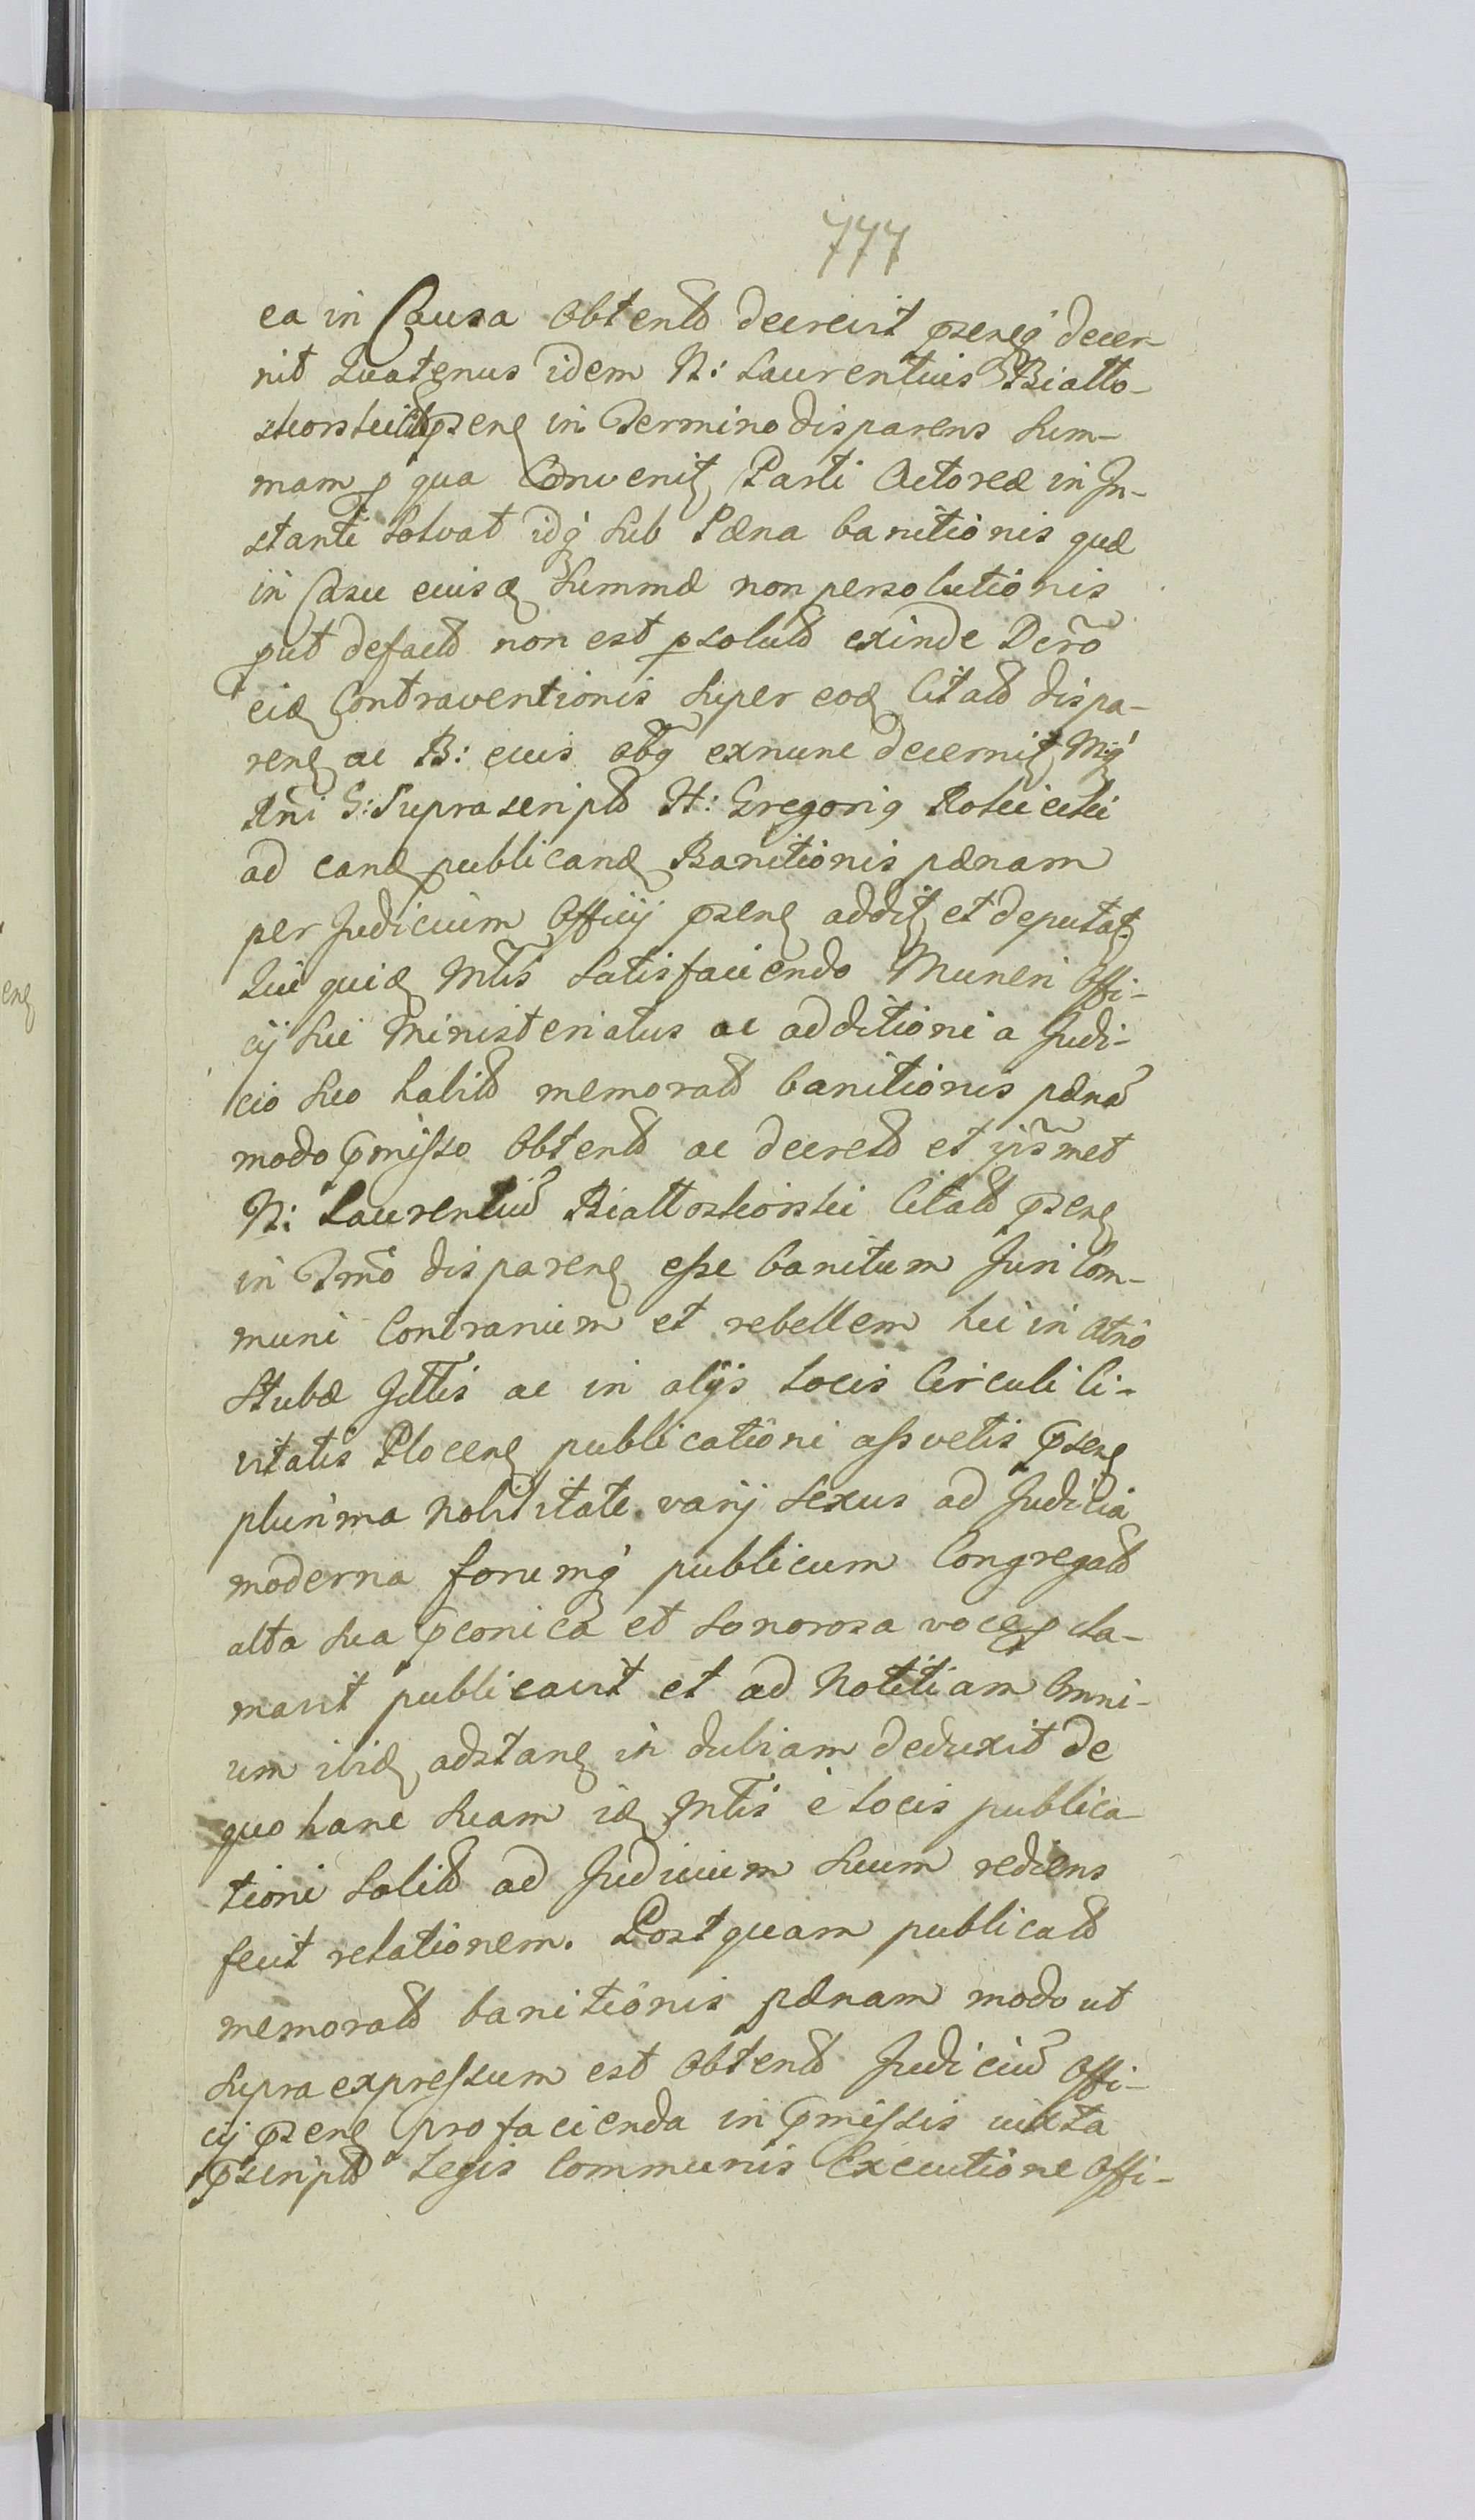 777
ea in Causa Obtentũ decrevit pseneq́ decer-
nit Quatenus idem N: Laurentius Biatto-
skorski Citt psens in Termino disparens Sum-
mam p qua Convenit, Parti Actoreæ in In-
stanti Solvat idq́ Sub Pæna banitionis quæ
in Casu eiusd Summæ non persolutionis
put defactõ non est psolutũ exinde Dcrõ
eid Contraventionis Super eod Citatõ dispa-
ren ac B: eius obq exnunc decernit, Mgq́
Rñi G: Suprascriptũ H: Gregorig
ad eand publicand Banitionis pænam
per Judicium Officij psen addit, et deputat,
Qui quid Mtis Satisfaciendo Muneri Offi-
cij Sui Ministeriatus ac additioni a Judi-
cio Suo habitõ memoratũ banitionis pænã
modo pmisso Obtentũ ac decretũ et met
N: Laurentiũ Biattoskorski Citatũ psen
in Tmõ disparen esse banitum Juri Com-
muni Contrarium et rebellem hic in Atrio
Stubæ Jttis ac in alijs Locis Circuli Ci-
vitatis Plocen publicationi assvetis psen
plurima nobilitate varij Sexus ad Judicia
moderna forumq́ publicum Congregatũ
alta Sua pconica et Sonorosa voce pcla-
mavit publicavit et ad Notitiam Omni-
um ibid adstan in dubiam deduxit de
quo hanc Suam id Mtis è Locis publica-
tioni Solitũ ad Judicium Suum rediens
fecit relationem. Postquam publicatũ
memoratũ banitionis pænam modo ut
Supra expressum est Obtentũ Judiciũ Offi-
cij psen pro facienda in pmissis iuxta
pscriptũ Legis Communis Executione Offi-